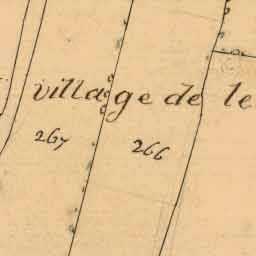 village de le
267 266